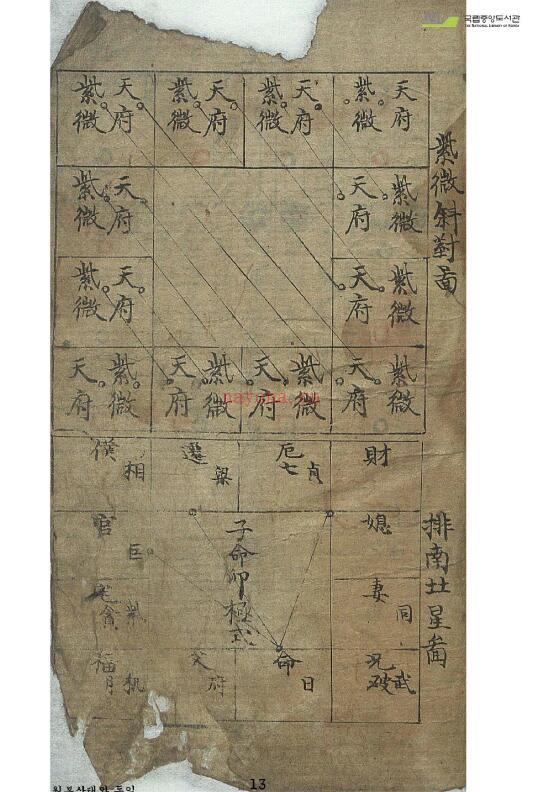 국립중앙도서관
THE NATIONAL LIBRARY OF KOREA
紫微斜對啚
天府 紫微 天府 紫微 天府 紫微 天府 紫微
紫微 天府
天府 紫微
紫微 天府
天府 紫微
紫微 天府 紫微 天府 紫微 天府 紫微 天府
排南斗星啚
財
厄 七 貞
遷 梁
相
媳
官 巨
子命卯極式
妻 同
紫
武 破
命 日
父 府
福 机
13